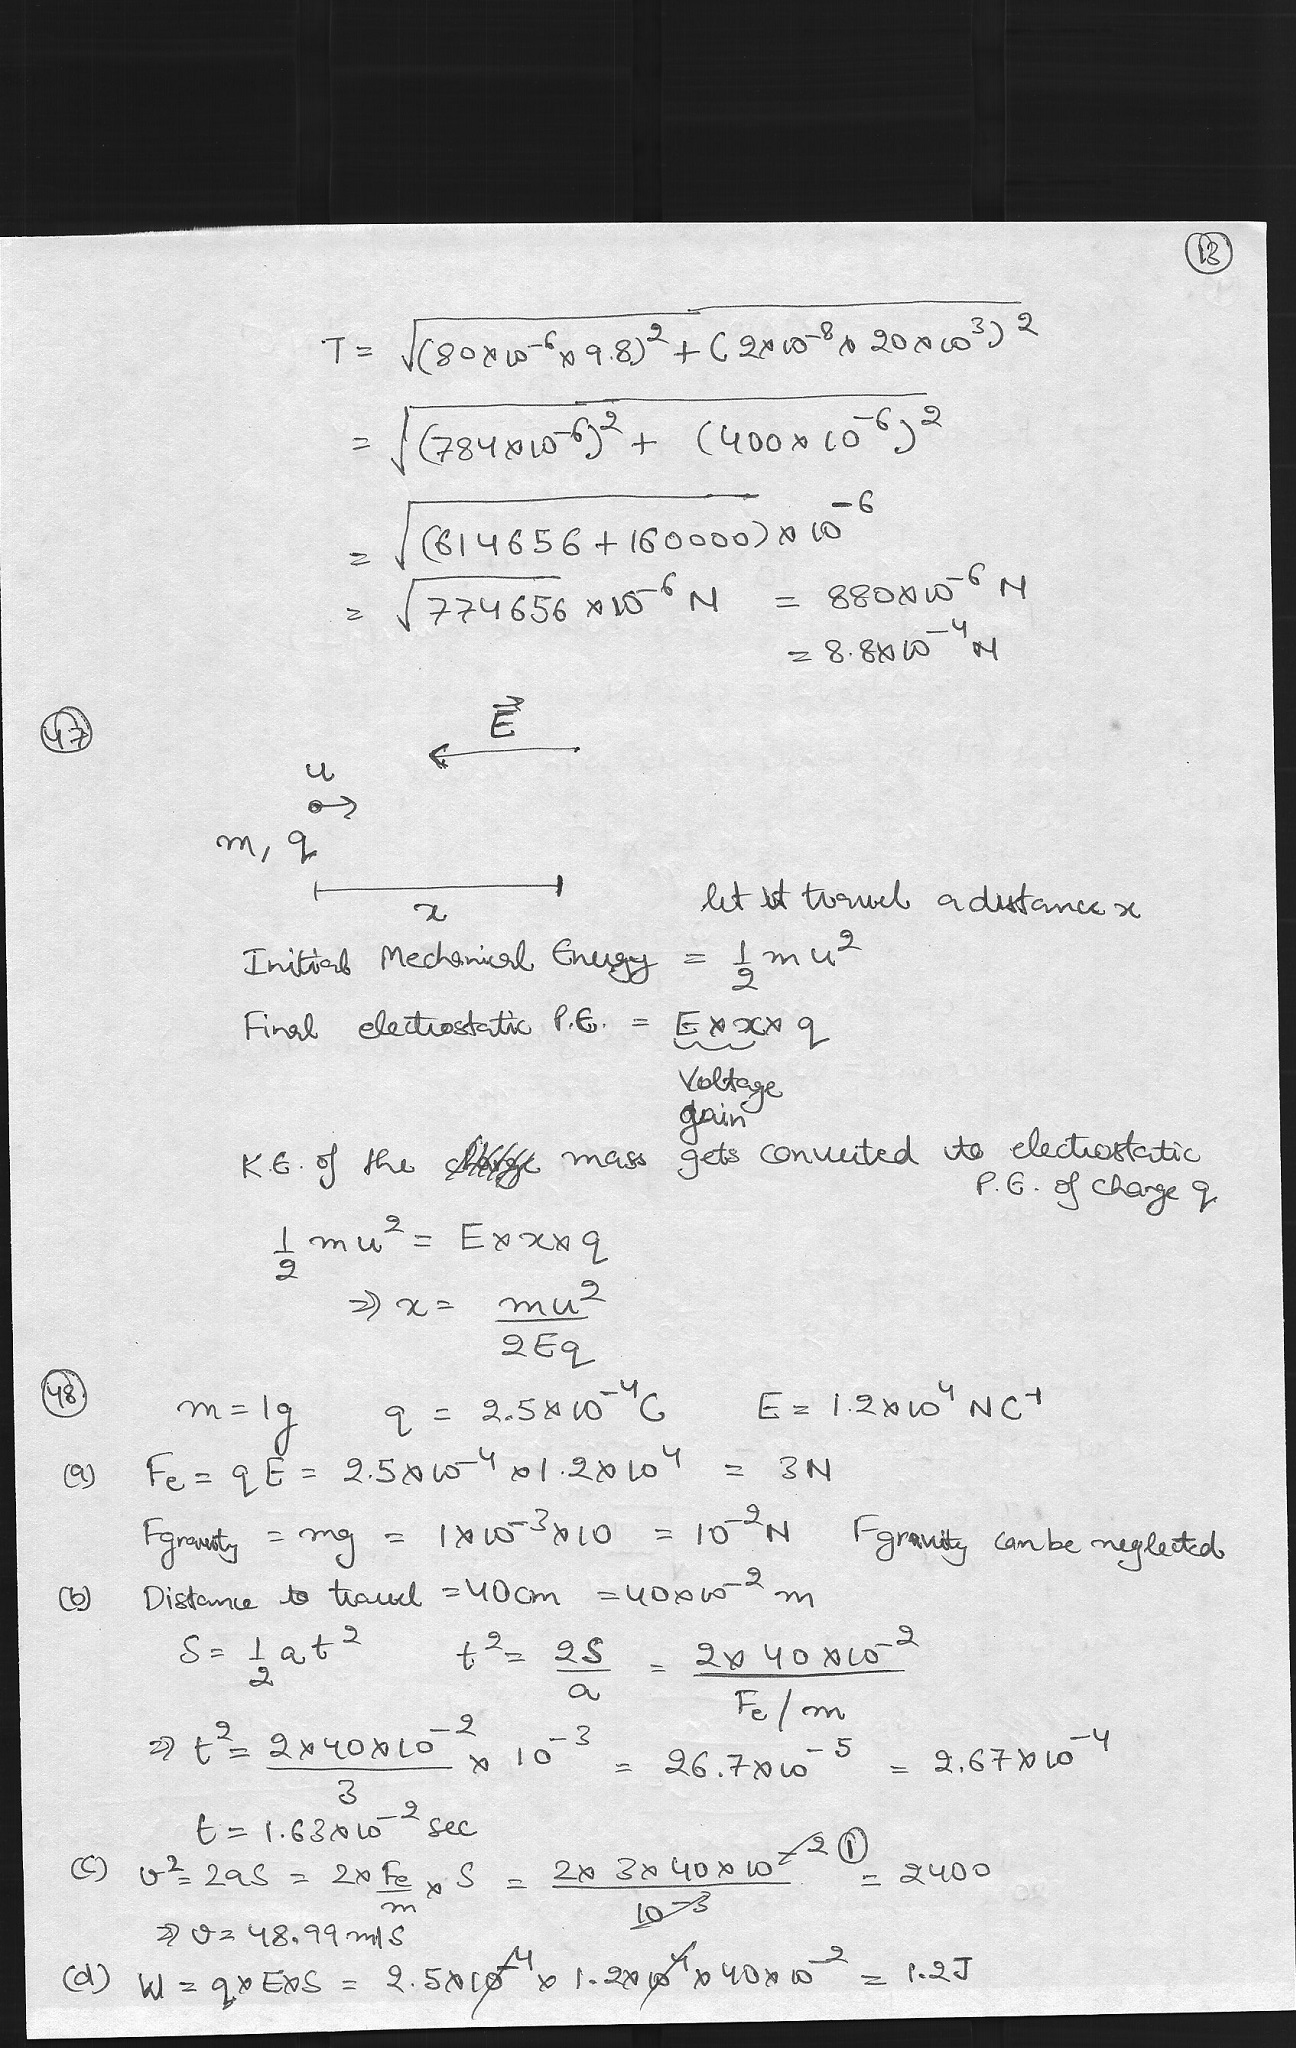 13
T = √((80×10⁻⁶×9.8)² + (2×10⁻⁸×20×10³)²
= √((784×10⁻⁶)² + (400×10⁻⁶)²
= √(614656+160000) × 10⁻⁶
= √774656 ×10⁻⁶ N = 880×10⁻⁶ N
= 8.8×10⁻⁴ N
47
E⃗
u
m, q
x let it travel a distance x
Initial Mechanical Energy = 1/2 mu²
Final electrostatic P.E. = E×x×q
Voltage
gain
K.E. of the mass gets converted to electrostatic
P.E. of charge q
1/2 mu² = E×x×q
⇒ x = mu²/2Eq
48. m = 1g q = 2.5×10⁻⁴C E = 1.2×10⁴ NC⁻¹
(a) Fe = qE = 2.5×10⁻⁴×1.2×10⁴ = 3N
Fgravity = mg = 1×10⁻³×10 = 10⁻²N Fgravity can be neglected
(b) Distance to travel = 40cm = 40×10⁻² m
S = 1/2 at² t² = 2S/a = 2×40×10⁻²/Fe/m
⇒ t² = 2×40×10⁻²/3 × 10⁻³ = 26.7×10⁻⁵ = 2.67×10⁻⁴
t = 1.63×10⁻² sec
(c) v² = 2aS = 2×Fe/m × S = 2×3×40×10⁻² ①/10⁻³ = 2400
⇒ v = 48.99 m/s
(d) W = q×E×S = 2.5×10⁻⁴ × 1.2×10⁴×40×10⁻² = 1.2J